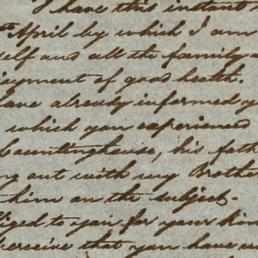 I have this instant
April by which I am
self and all the family a
joyment of good health.
have already informed y
which you experienced
Countinghouse, his fath
ng out with my Brothe
him on the subject.
liged to you for your kin
perceive that you have